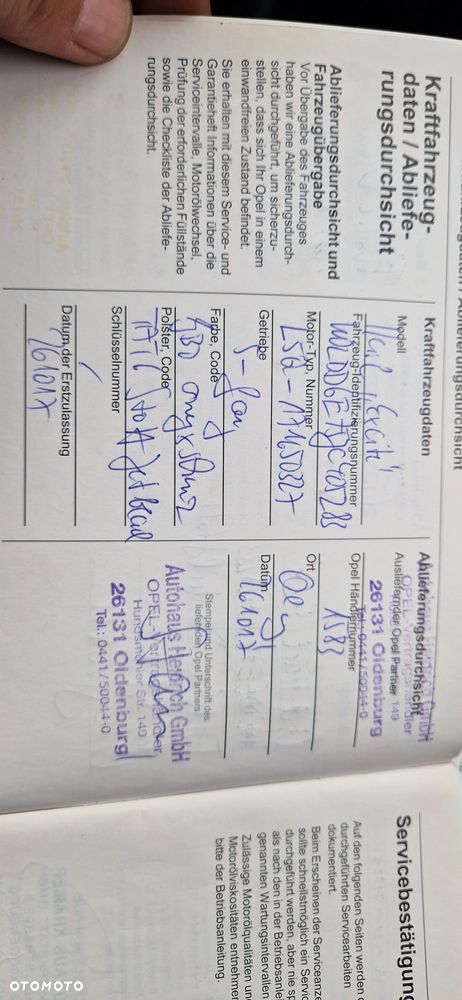 Kraftfahrzeug-
daten / Abliefe-
rungsdurchsicht
Ablieferungsdurchsicht und
Fahrzeugübergabe
Vor Übergabe des Fahrzeuges
haben wir eine Ablieferungsdurch-
sicht durchgeführt, um sicherzu-
stellen, dass sich Ihr Opel in einem
einwandfreien Zustand befindet.
Sie erhalten mit diesem Service- und
Garantieheft Informationen über die
Serviceintervalle, Motorölwechsel,
Prüfung der erforderlichen Füllstände
sowie die Checkliste der Abliefe-
rungsdurchsicht.
Kraftfahrzeugdaten
"Excite"
Modell
Fahrzeug-Identifizierungsnummer
Motor-Typ, Nummer
5-
Getriebe
Farbe, Code
Polster, Code
Schlüsselnummer
261017
Datum der Erstzulassung
Ablieferungsdurchsicht
Ausliefernder Opel Partner
26131 Oldenburg
Tel.: 0441/50044-0
1583
Opel Händlernummer
Ort
261017
Datum
Stempel und Unterschrift des
liefernden Opel Partners
Autohaus Heinrich GmbH
Hundsmühler Str. 149
26131 Oldenburg
Tel.: 0441/50044-0
Servicebestätigung
Auf den folgenden Seiten werden
durchgeführten Servicearbeiten
dokumentiert.
Beim Erscheinen der Serviceanze
sollte schnellstmöglich ein Servic
durchgeführt werden, aber nie
als nach den in der Betriebsanle
genannten Wartungsintervallen
Zulässige Motorölqualitäten un
Motorölviskositäten entnehmen
bitte der Betriebsanleitung.
OTOMOTO